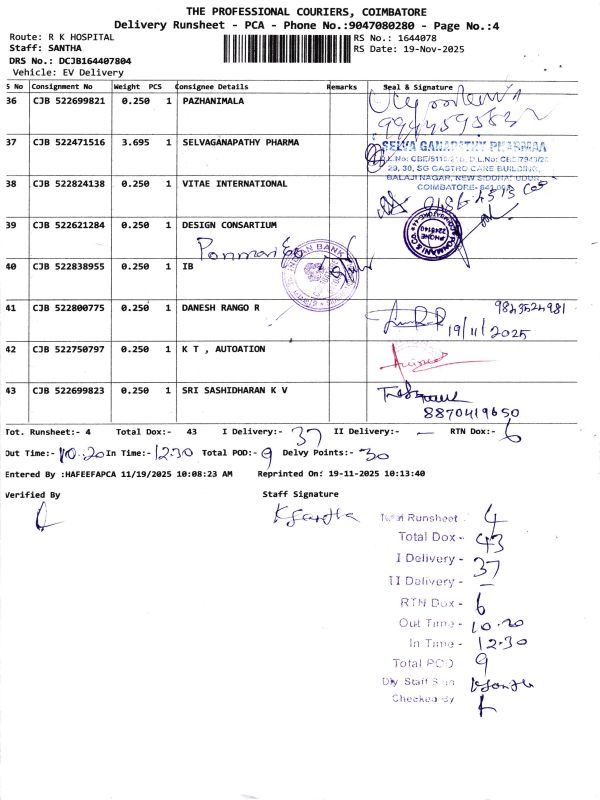 THE PROFESSIONAL COURIERS, COIMBATORE
Delivery Runsheet - PCA - Phone No.:9047080280 - Page No.:4
Route: R K HOSPITAL
RS No.: 1644078
Staff: SANTHA
RS Date: 19-Nov-2025
DRS No.: DCJB164407804
Vehicle: EV Delivery
S No Consignment No Weight PCS Consignee Details Remarks Seal & Signature
36 CJB 522699821 0.250 1 PAZHANIMALA
37 CJB 522471516 3.695 1 SELVAGANAPATHY PHARMA
SELVA GANAPATHY PHARMAA
29, 30, SG GASTRO CARE BUILDING,
BALAJI NAGAR, NEW SIDDHAPUDUR,
COIMBATORE-
38 CJB 522824138 0.250 1 VITAE INTERNATIONAL
39 CJB 522621284 0.250 1 DESIGN CONSARTIUM
40 CJB 522838955 0.250 1 IB
INDIAN BANK
41 CJB 522800775 0.250 1 DANESH RANGO R
9843524981
19/11/2025
42 CJB 522750797 0.250 1 K T , AUTOATION
43 CJB 522699823 0.250 1 SRI SASHIDHARAN K V
8870419650
Tot. Runsheet:- 4 Total Dox:- 43 I Delivery:- 37 II Delivery:- — RTN Dox:- 6
Out Time:- 10.20 In Time:- 12.30 Total POD:- 9 Delvy Points:- 30
Entered By :HAFEEFAPCA 11/19/2025 10:08:23 AM Reprinted On: 19-11-2025 10:13:40
Verified By Staff Signature
K Santha
Total Runsheet - 4
Total Dox - 43
I Delivery - 37
II Delivery - —
RTN Dox - 6
Out Time - 10.20
In Time - 12.30
Total POD 9
Dly Staff Sign K Santha
Checked By